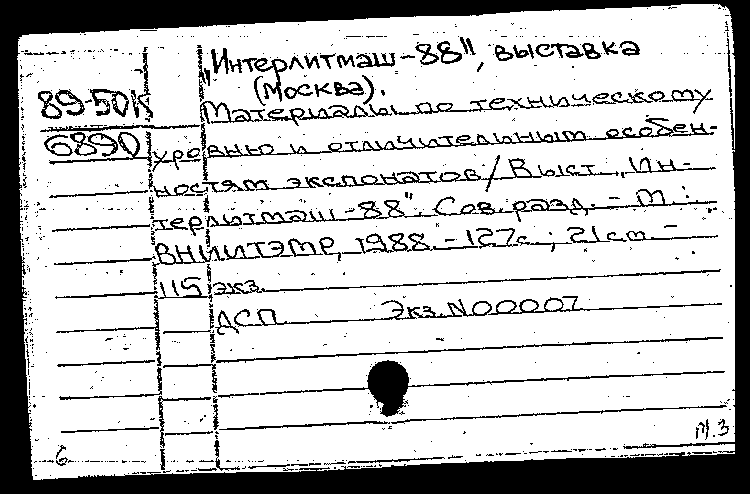 „Интерлитмаш-88", выставка
(Москва).
89-50К Материалы по техническому
6890 уровню и отличительным особен-
ностям экспонатов / Выст. „Ин-
терлитмаш-88". Сов. разд. - М.:
ВНИИТЭМР, 1988. - 127с.; 21см. -
115 экз.
ДСП Экз. N00007
М.З
6